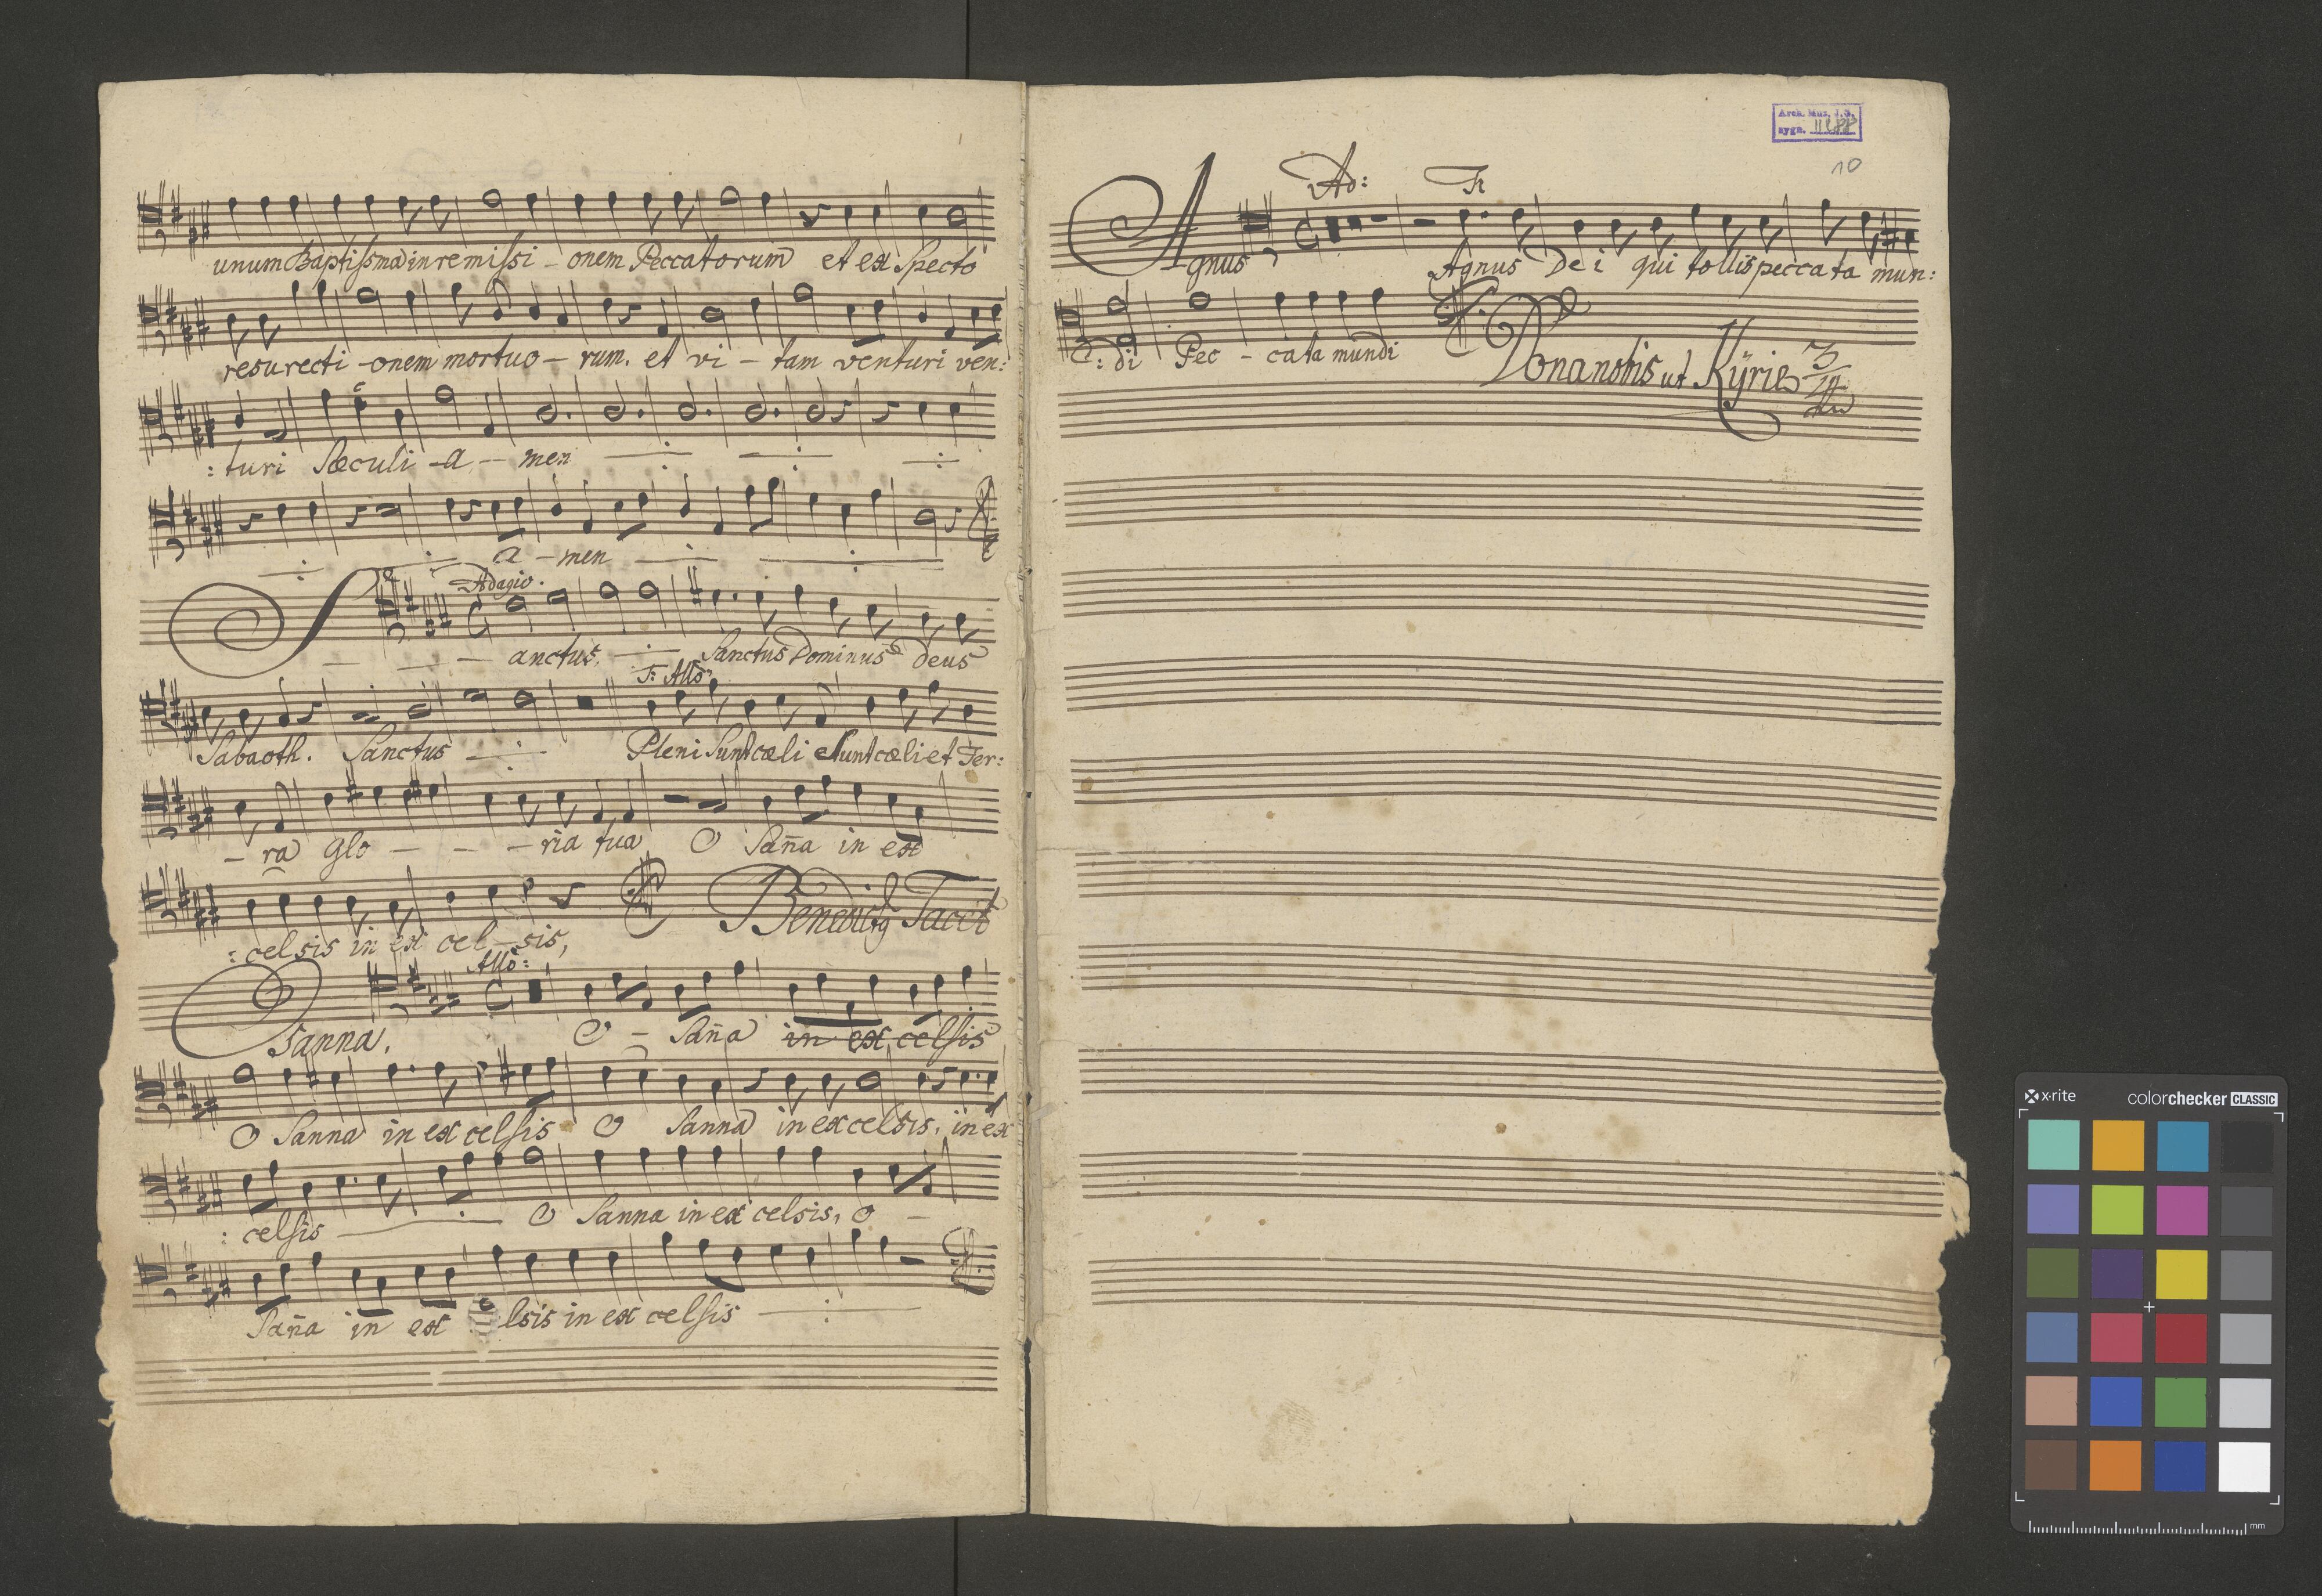 unum Baptissma in remissi - onem Peccatorum et ex Specto
resurecti - onem mortuo - rum. et vi - tam venturi ven:
: turi Sæculi - a - men
a - men
Adagio.
Sanctus. Sanctus Dominus Deus
T: Allo
Sabaoth. Sanctus Pleni Sunt cæli et Sunt cæli et Ter:
- ra glo - - - ria tua O Sana in ex
: celsis in ex cel - sis, Benedictg Tacet
Allo:
Osanna. O - Sana in ex celsis
O Sanna in ex celsis O Sanna in excelsis, in ex
: celsis O Sanna in ex celsis, O -
Sana in ex celsis in ex celsis
Arch. Muz. J.G.
sygn.
10
Ad: T:
Agnus Agnus Dei qui tollis peccata mun:
: di Pec - cata mundi
Dona nobis ut Kÿrie 3/4
x·rite colorchecker CLASSIC
mm